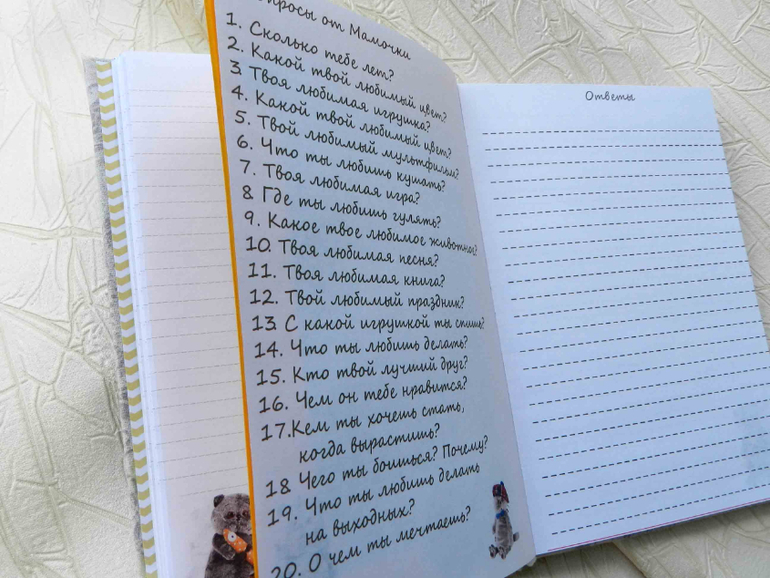 от Мамочки
1. Сколько тебе лет?
2. Какой твой любимый цвет?
3. Твоя любимая игрушка?
4. Какой твой любимый цвет?
5. Твой любимый мультфильм?
6. Что ты любишь кушать?
7. Твоя любимая игра?
8. Где ты любишь гулять?
9. Какое твое любимое животное?
10. Твоя любимая песня?
11. Твоя любимая книга?
12. Твой любимый праздник?
13. С какой игрушкой ты спишь?
14. Что ты любишь делать?
15. Кто твой лучший друг?
16. Чем он тебе нравится?
17.Кем ты хочешь стать,
когда вырастишь?
18. Чего ты боишься? Почему?
19. Что ты любишь делать
на выходных?
20. О чем ты мечтаешь?
Ответы